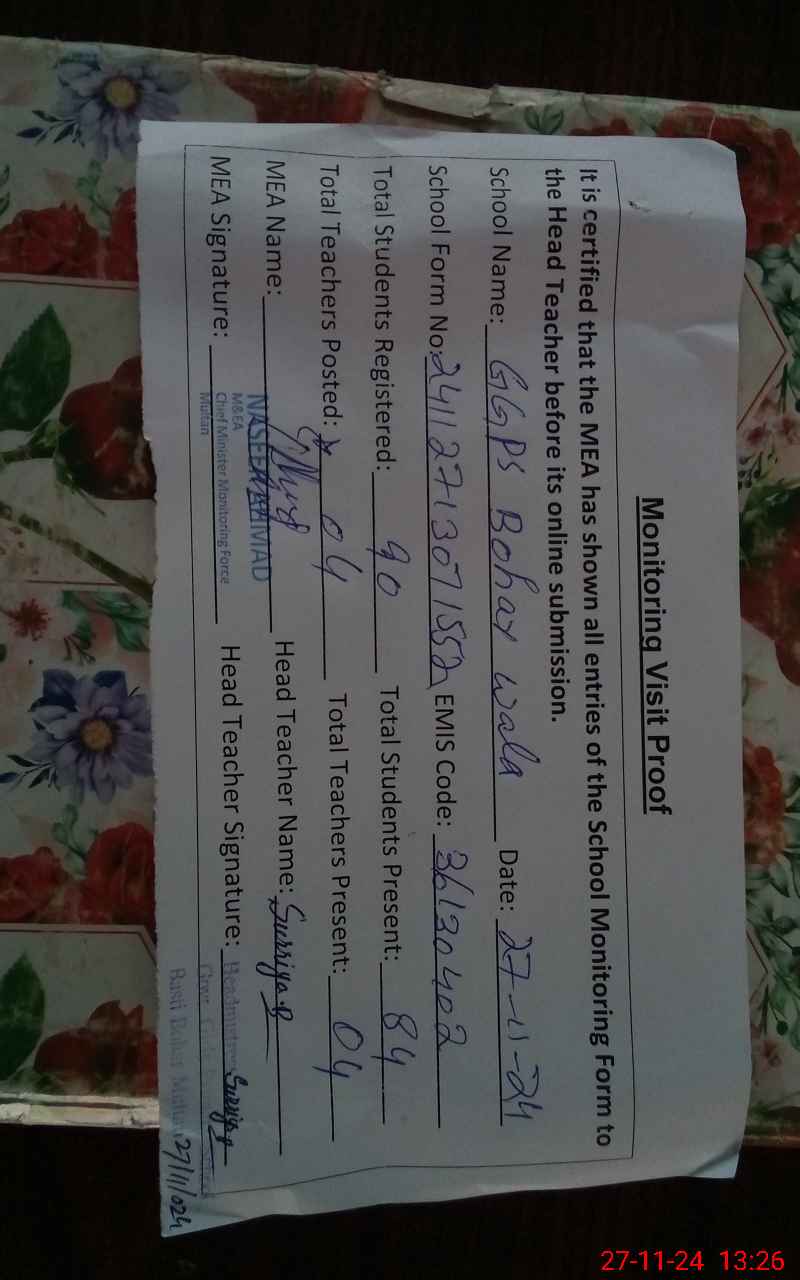 Monitoring Visit Proof
It is certified that the MEA has shown all entries of the School Monitoring Form to
the Head Teacher before its online submission.
School Name: GGPS Bohar wala Date: 27-11-24
School Form No: 24112713071552 EMIS Code: 36130402
Total Students Registered: 90 Total Students Present: 84
Total Teachers Posted: 04 Total Teachers Present: 04
MEA Name: NASEER AHMAD Head Teacher Name: Surriya
M&EA
Chief Minister Monitoring Force
Multan
MEA Signature: Head Teacher Signature: Surriya
Headmistress
Govt. School
Basti Bohar Multan 27/11/024
27-11-24 13:26